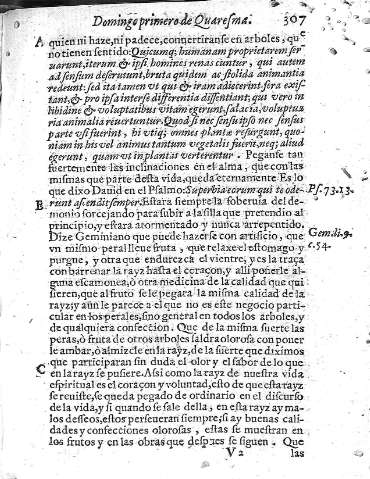 Domingo primero de Quaresma. 307
A quien ni haze, ni padece, conuertiranse en arboles, que
no tienen sentido: Quicumq; humanam proprietatem ser
uarunt, iterum & ipsi homines renascuntur, qui autem
ad sensum deserutunt, bruta quidem ac stolida animantia
redeunt: sed ita tamen vt qui & iram adiecerint fera exis-
tant, & pro ipsa inter se differentia dissentiant: qui vero in
libidine & voluptatibus vitam egerunt, salacia, voluptua
ria animalia reuertuntur. Quod si nec sensu ipso nec sensus
parte vsi fuerint, hi vtiq; omnes plantæ resurgunt, quo-
niam in his vel animus tantum vegetalis fuerit, neq; aliud
egerunt, quam vt in plantas verterentur. Peganse tan
fuertemente las inclinaciones en el alma, que con las
mismas que parte desta vida, queda eternamente. Es lo
que dixo Dauid en el Psalmo: Superbia eorum qui te ode- Ps. 73. 23.
B runt ascendit semper. Estara siempre la soberuia del de-
monio forcejando para subir a la silla que pretendio al
principio, y estara atormentado y nunca arrepentido.
Dize Geminiano que puede hazerse con artificio, que Gem. di. 9.
vn mismo peral lleue fruta, que relaxe el estomago y c. 54.
purgue, y otra que endurezca el vientre, y es la traça
con barrenar la rayz hasta el coraçon, y alli ponerle al-
guna escamonea, ò otra medicina de la calidad que qui
sieren, que al fruto se le pegara la misma calidad de la
rayz: y aun le parece a el que no es este negocio parti-
cular en los perales, sino general en todos los arboles, y
de qualquiera confeccion. Que de la misma suerte las
peras, ò fruta de otros arboles saldra olorosa con poner
le ambar, ò almizcle en la rayz, de la suerte que diximos
que participaran sin duda el olor y el sabor de lo que
C en la rayz se pusiere. Assi como la rayz de nuestra vida
espiritual es el coraçon y voluntad, esto de que esta rayz
se reuiste, se queda pegado de ordinario en el discurso
de la vida, y si quando se sale della, en esta rayz ay ma-
los desseos, estos perseueran siempre: si ay buenas cali-
dades y confecciones olorosas, estas se muestran en
los frutos y en las obras que despues se siguen. Que
V 2 las